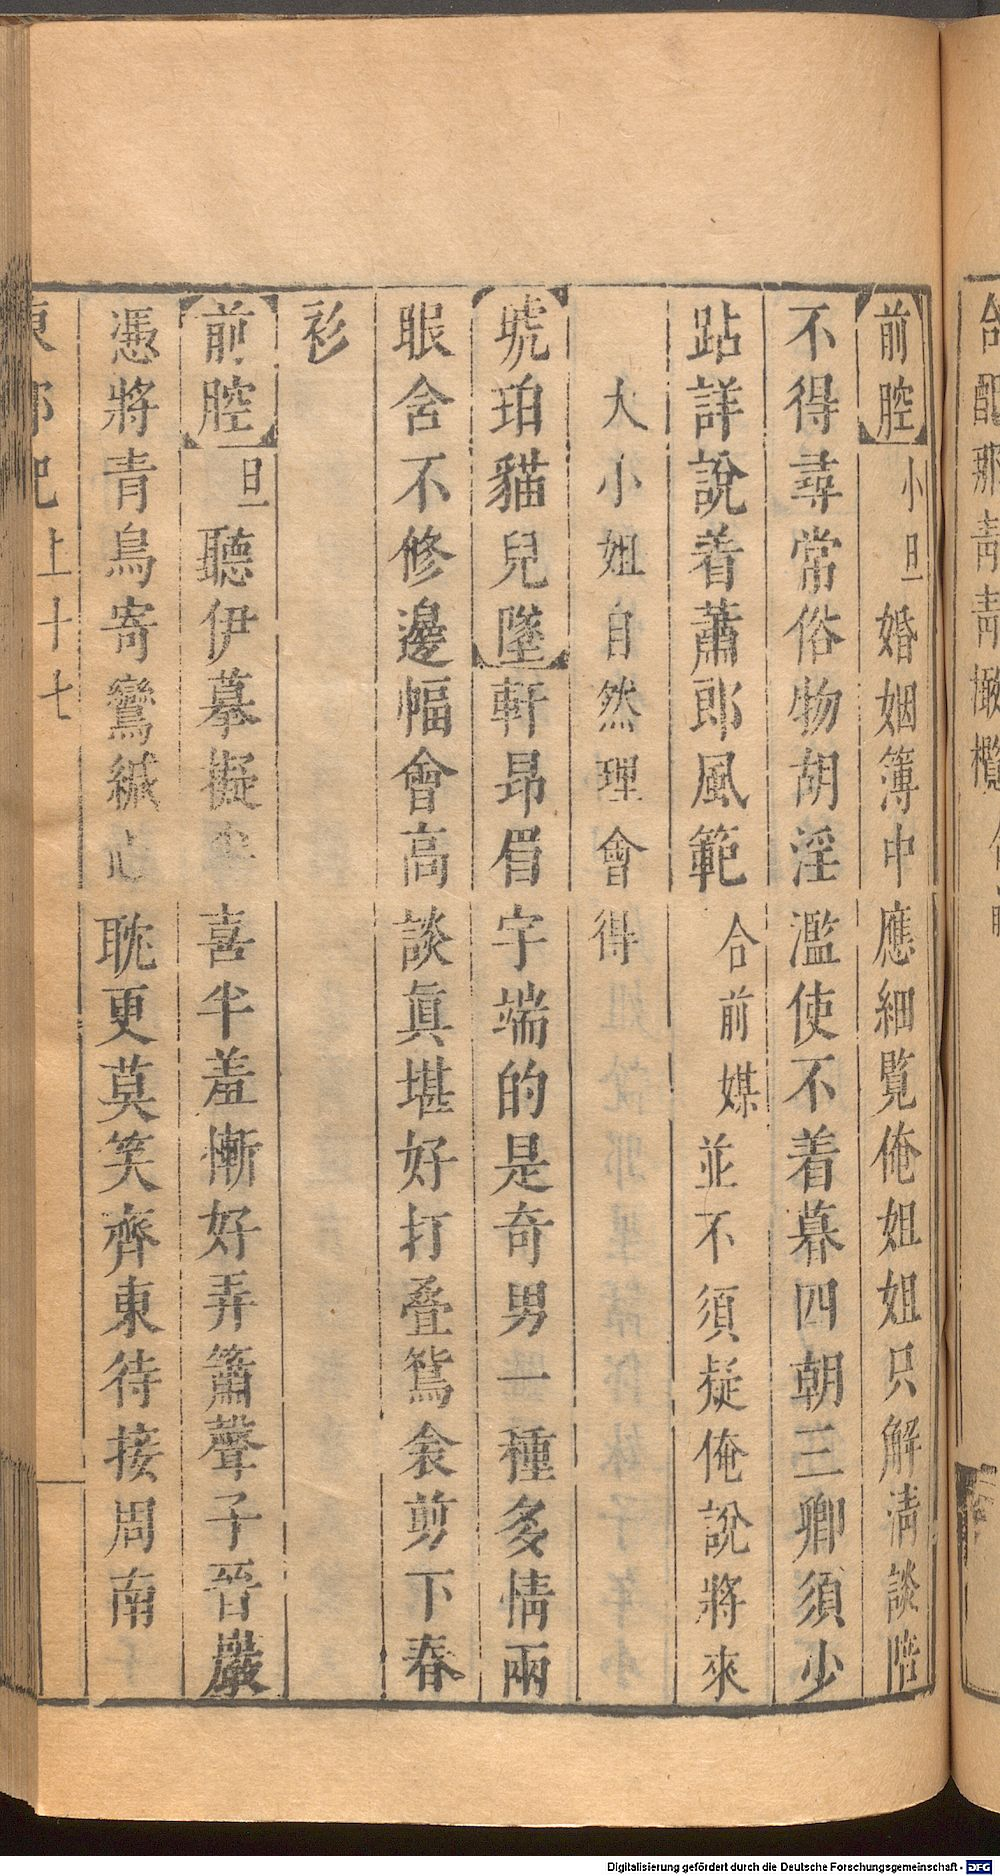 前腔 小旦 婚姻簿中應細覽俺姐姐只解清談
不得尋常俗物胡淫濫使不着暮四朝三卿須少
跕詳說着蕭郎風範 合前 媒 並不須疑俺說將來
大小姐自然理會得
琥珀貓兒墜 軒昂眉宇端的是奇男一種多情兩
眼舍不修邊幅會高談眞堪好打叠鴛衾剪下春
衫
前腔 旦 聽伊摹擬半喜半羞慚好弄簫聲子晉巖
憑將青鳥寄鸞緘心耽更莫笑齊東待接周南
東郭記 上 十七
Digitalisierung gefördert durch die Deutsche Forschungsgemeinschaft - DFG